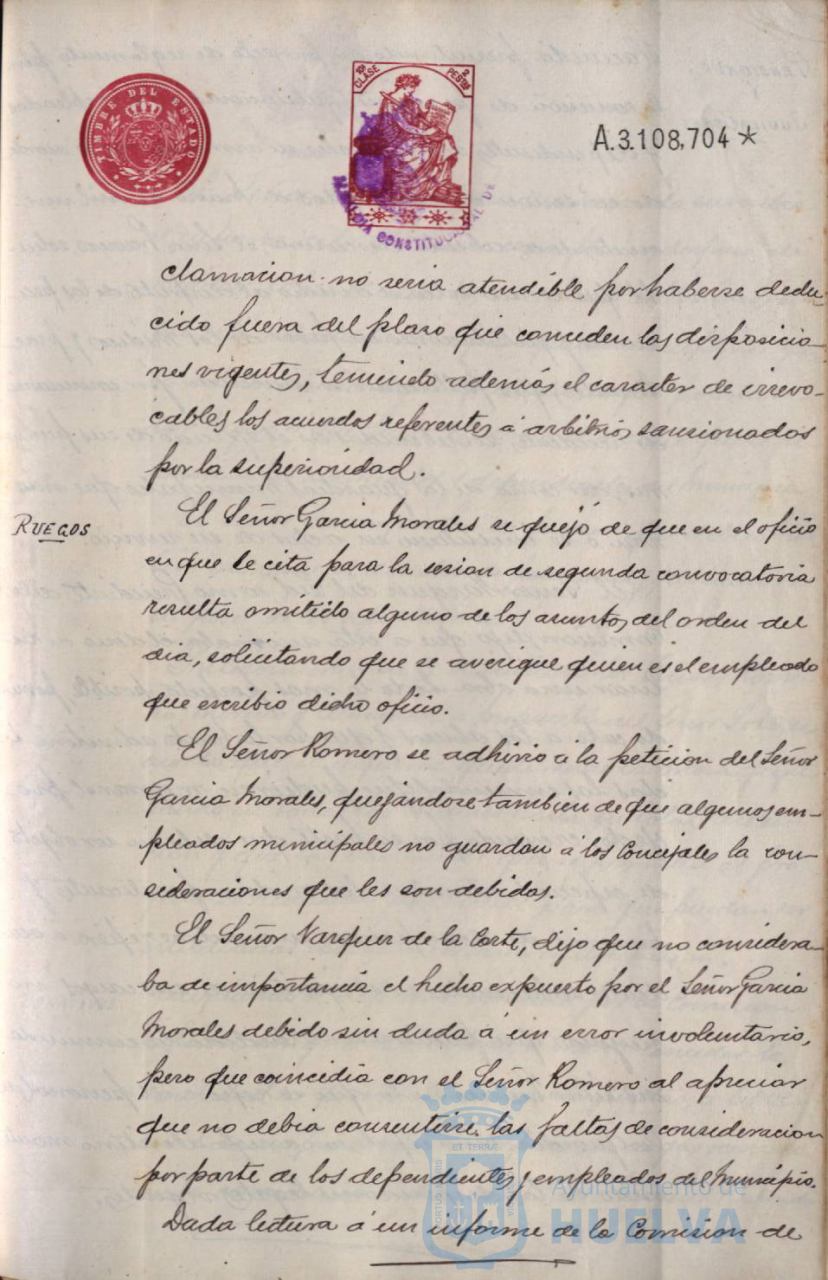 TIMBRE DEL ESTADO
10ª CLASE
2 PESTAS
ALCALDIA CONSTITUCIONAL DE
A.3.108,704 *
clamacion no seria atendible por haberse dedu-
cido fuera del plaso que conceden las disposicio-
nes vigentes, teniendo además el caracter de irrevo-
cables los acuerdos referentes á arbitrios sansionados
por la superioridad.
RUEGOS
El Señor Garcia Morales se quejó de que en el oficio
en que se cita para la sesion de segunda convocatoria
resulta omitido alguno de los asuntos del orden del
dia, solicitando que se averigue quien es el empleado
que escribio dicho oficio.
El Señor Romero se adhirio á la peticion del Señor
Garcia Morales, quejándose tambien de que algunos em-
pleados municipales no guardan á los Concejales la con-
sideraciones que les son debidas.
El Señor Vazquez de la Corte, dijo que no considera-
ba de importancia el hecho expuesto por el Señor Garcia
Morales debido sin duda á un error involuntario,
pero que coincidia con el Señor Romero al apreciar
que no debia consentirse las faltas de consideracion
por parte de los dependientes y empleados del Municipio.
Dada lectura á un informe de la Comision de
ET TERRÆ
Ayuntamiento de
HUELVA